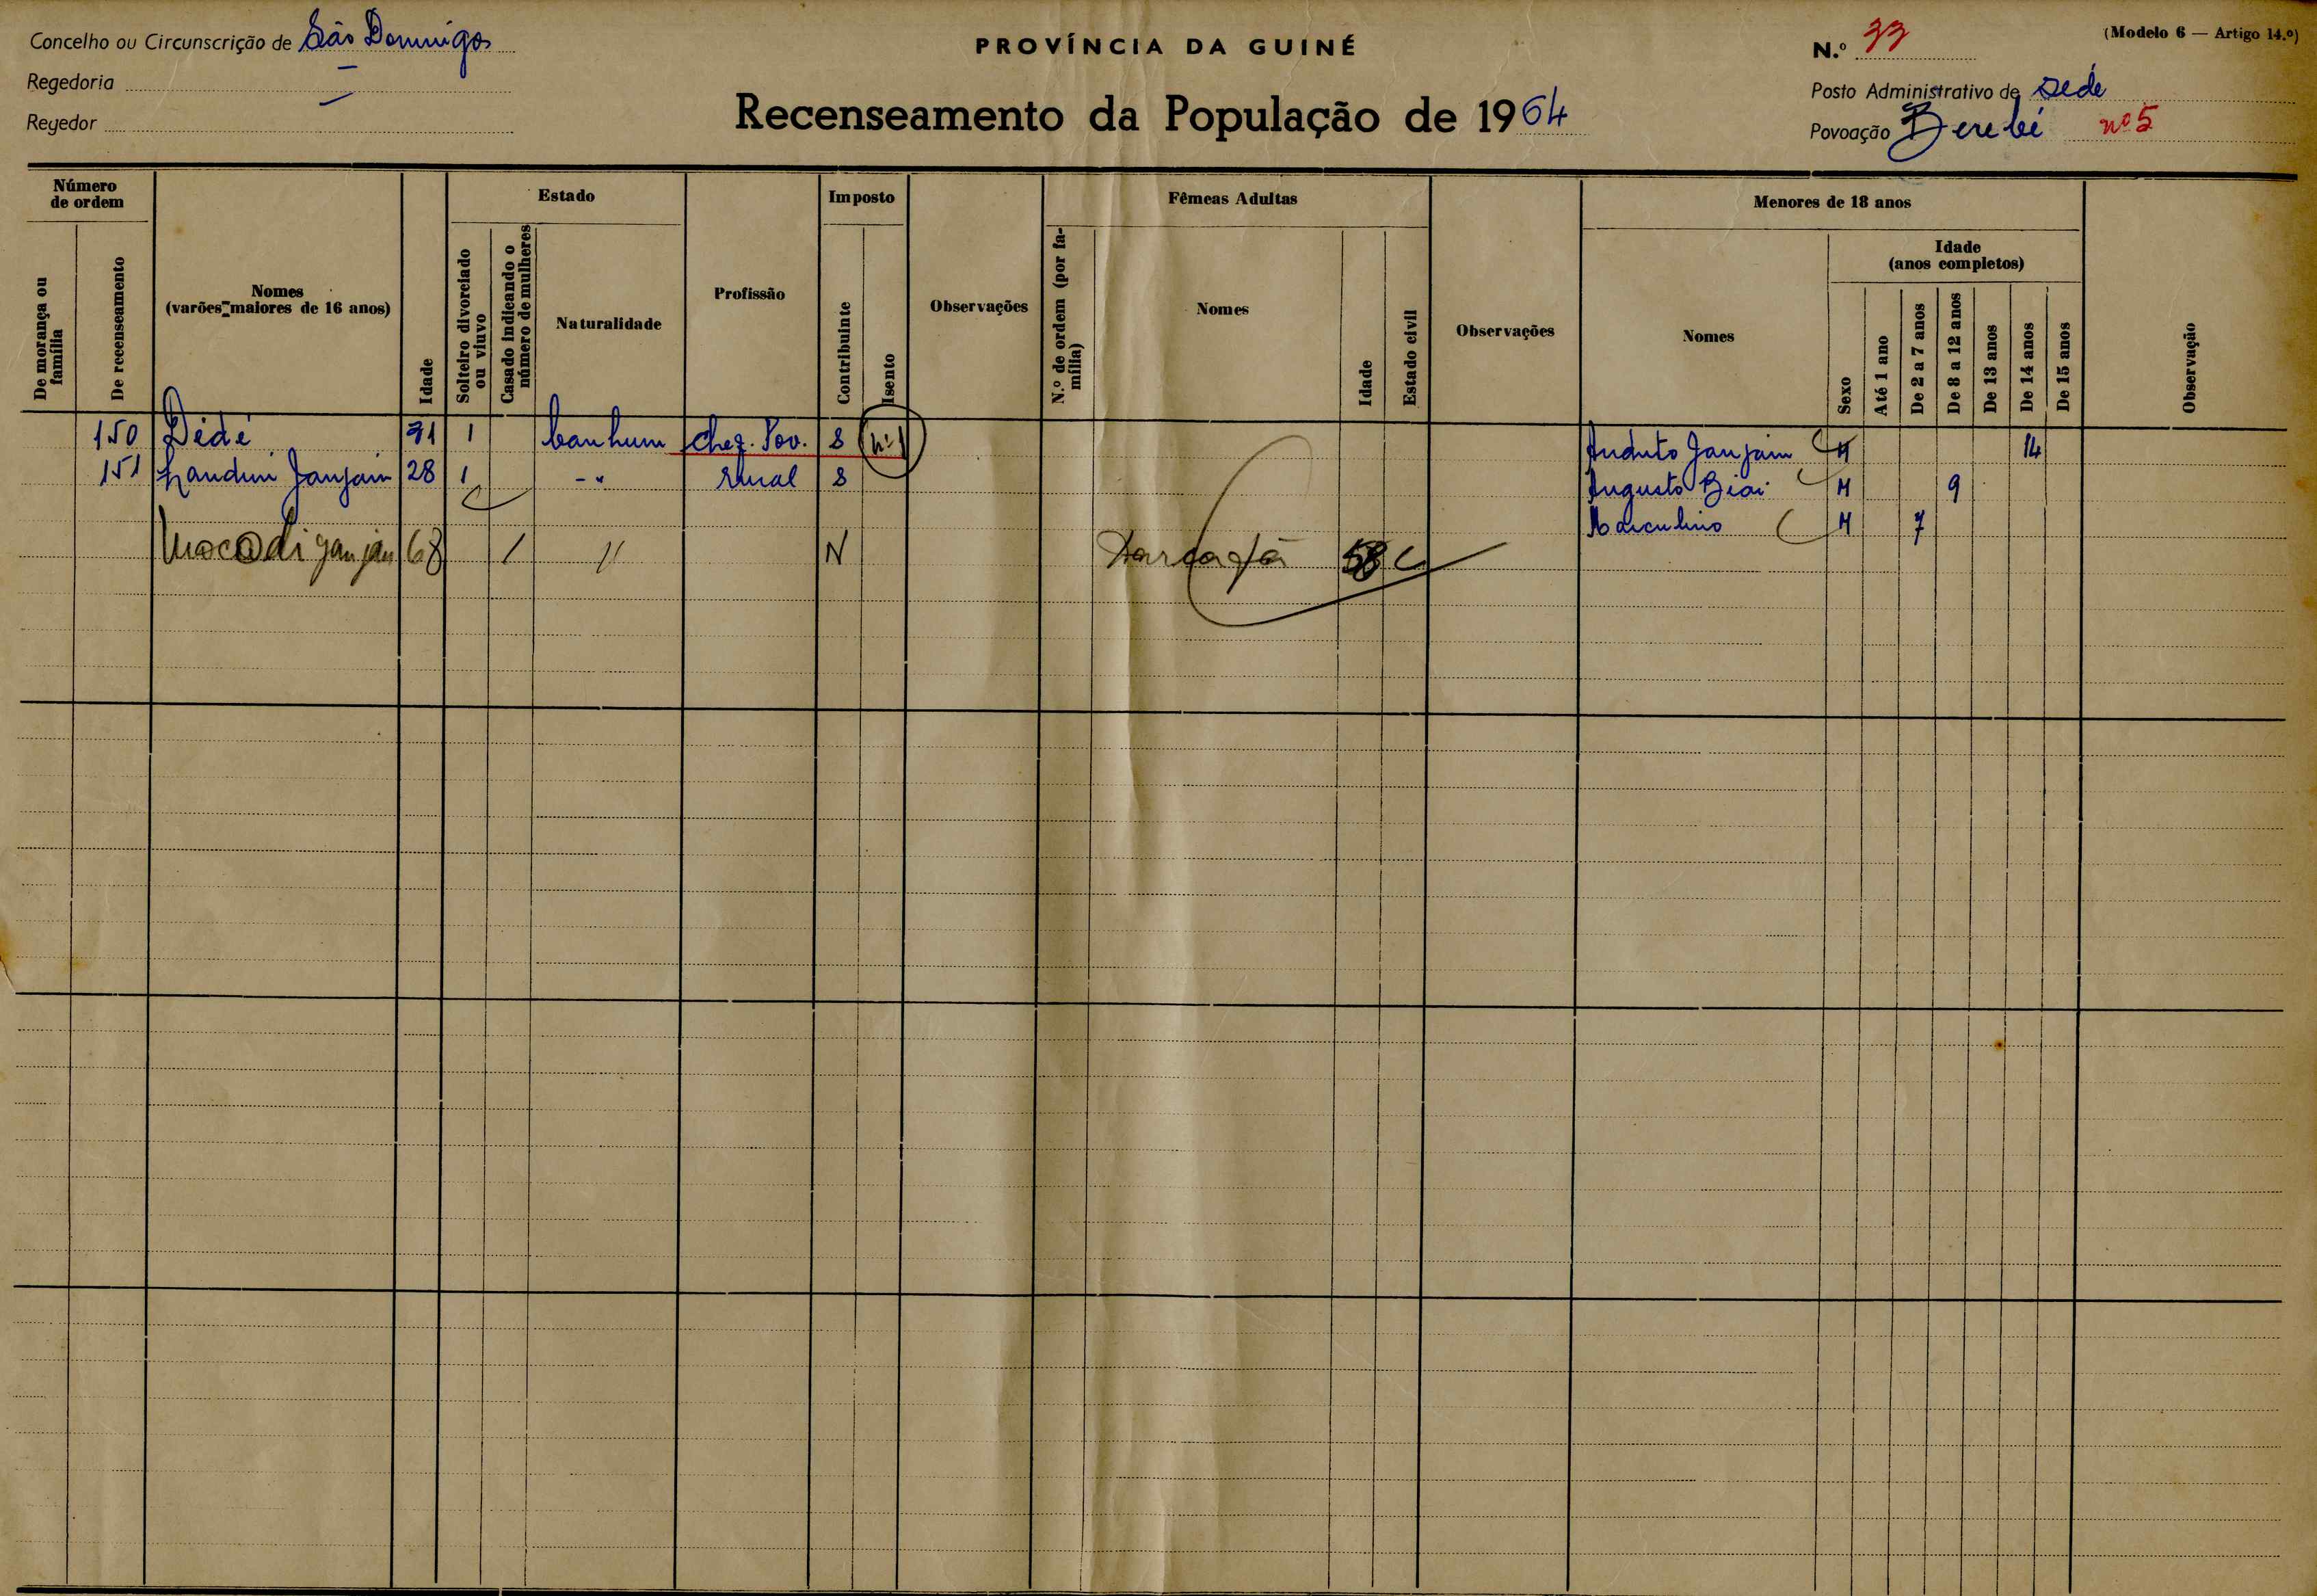 Concelho ou Circunscrição de São Domingos
Regedoria —
Regedor —
PROVÍNCIA DA GUINÉ
Recenseamento da População de 1964
(Modelo 6 — Artigo 14.º)
N.º 33
Posto Administrativo de sede
Povoação Berebé nº 5
Número de ordem
De morança ou família
De recenseamento
Nomes (varões maiores de 16 anos)
Idade
Estado
Solteiro divorciado ou viuvo
Casado indicando o número de mulheres
Naturalidade
Profissão
Imposto
Contribuinte
Isento
Observações
Fêmeas Adultas
N.º de ordem (por família)
Nomes
Idade
Estado civil
Observações
Menores de 18 anos
Nomes
Sexo
Idade (anos completos)
Até 1 ano
De 2 a 7 anos
De 8 a 12 anos
De 13 anos
De 14 anos
De 15 anos
Observação
150 Dédé 31 1 banhum Chef. Pov. S nº 1 Janjam M 14
151 Landim Janjam 28 1 -" rural S Augusto Biai M 9
Masculino M 7
68 1 " N 58 C